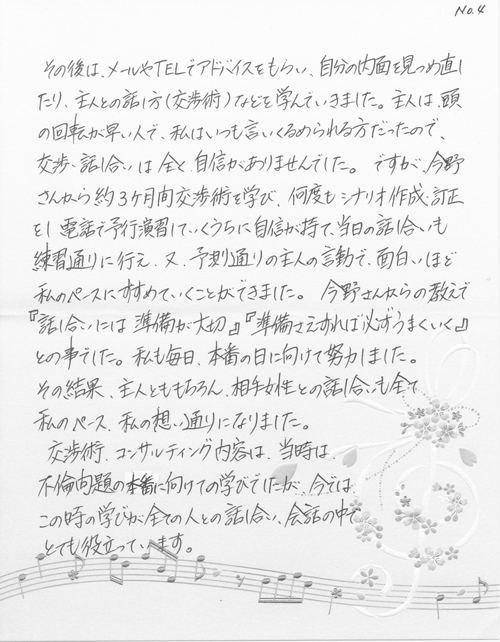 No.4
その後は、メールやTELでアドバイスをもらい、自分の内面を見つめ直し
たり、主人との話し方(交渉術)などを学んでいきました。主人は、頭
の回転が早い人で、私はいつも言いくるめられる方だったので、
交渉、話し合いは全く自信がありませんでした。ですが、今野
さんから約3ヶ月間交渉術を学び、何度もシナリオ作成、訂正
をし電話で予行演習していくうちに自信が持て、当日の話し合いも
練習通りに行え、又、予測通りの主人の言動で、面白いほど
私のペースにすすめていくことができました。今野さんからの教えで
『話し合いには準備が大切』『準備さえすれば必ずうまくいく』
との事でした。私も毎日、本番の日に向けて努力しました。
その結果、主人とももちろん、相手女性との話し合いも全て
私のペース、私の想い通りになりました。
交渉術、コンサルティング内容は、当時は、
不倫問題の本番に向けての学びでしたが、今では
この時の学びが全ての人との話し合い、会話の中で
とても役立っています。